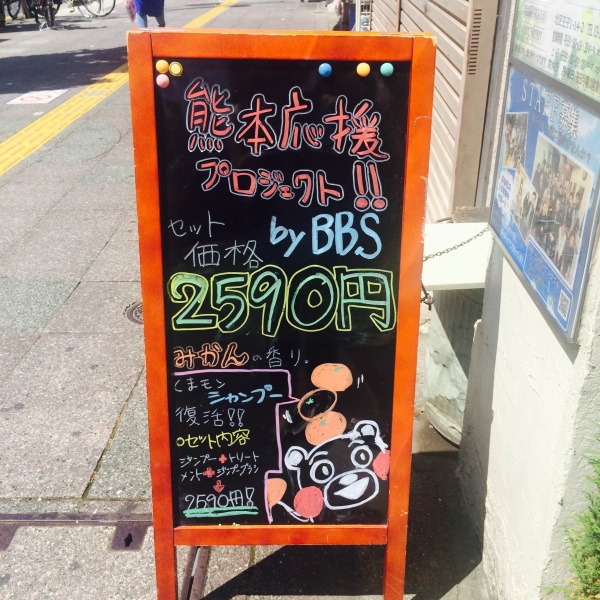 熊本応援
プロジェクト!!
by BBS
セット
価格
2590円
みかんの香り。
くまモン
シャンプー
復活!!
○セット内容
シャンプー+トリート
メント+シャンプーブラシ
↓
2590円!
STAFF募集